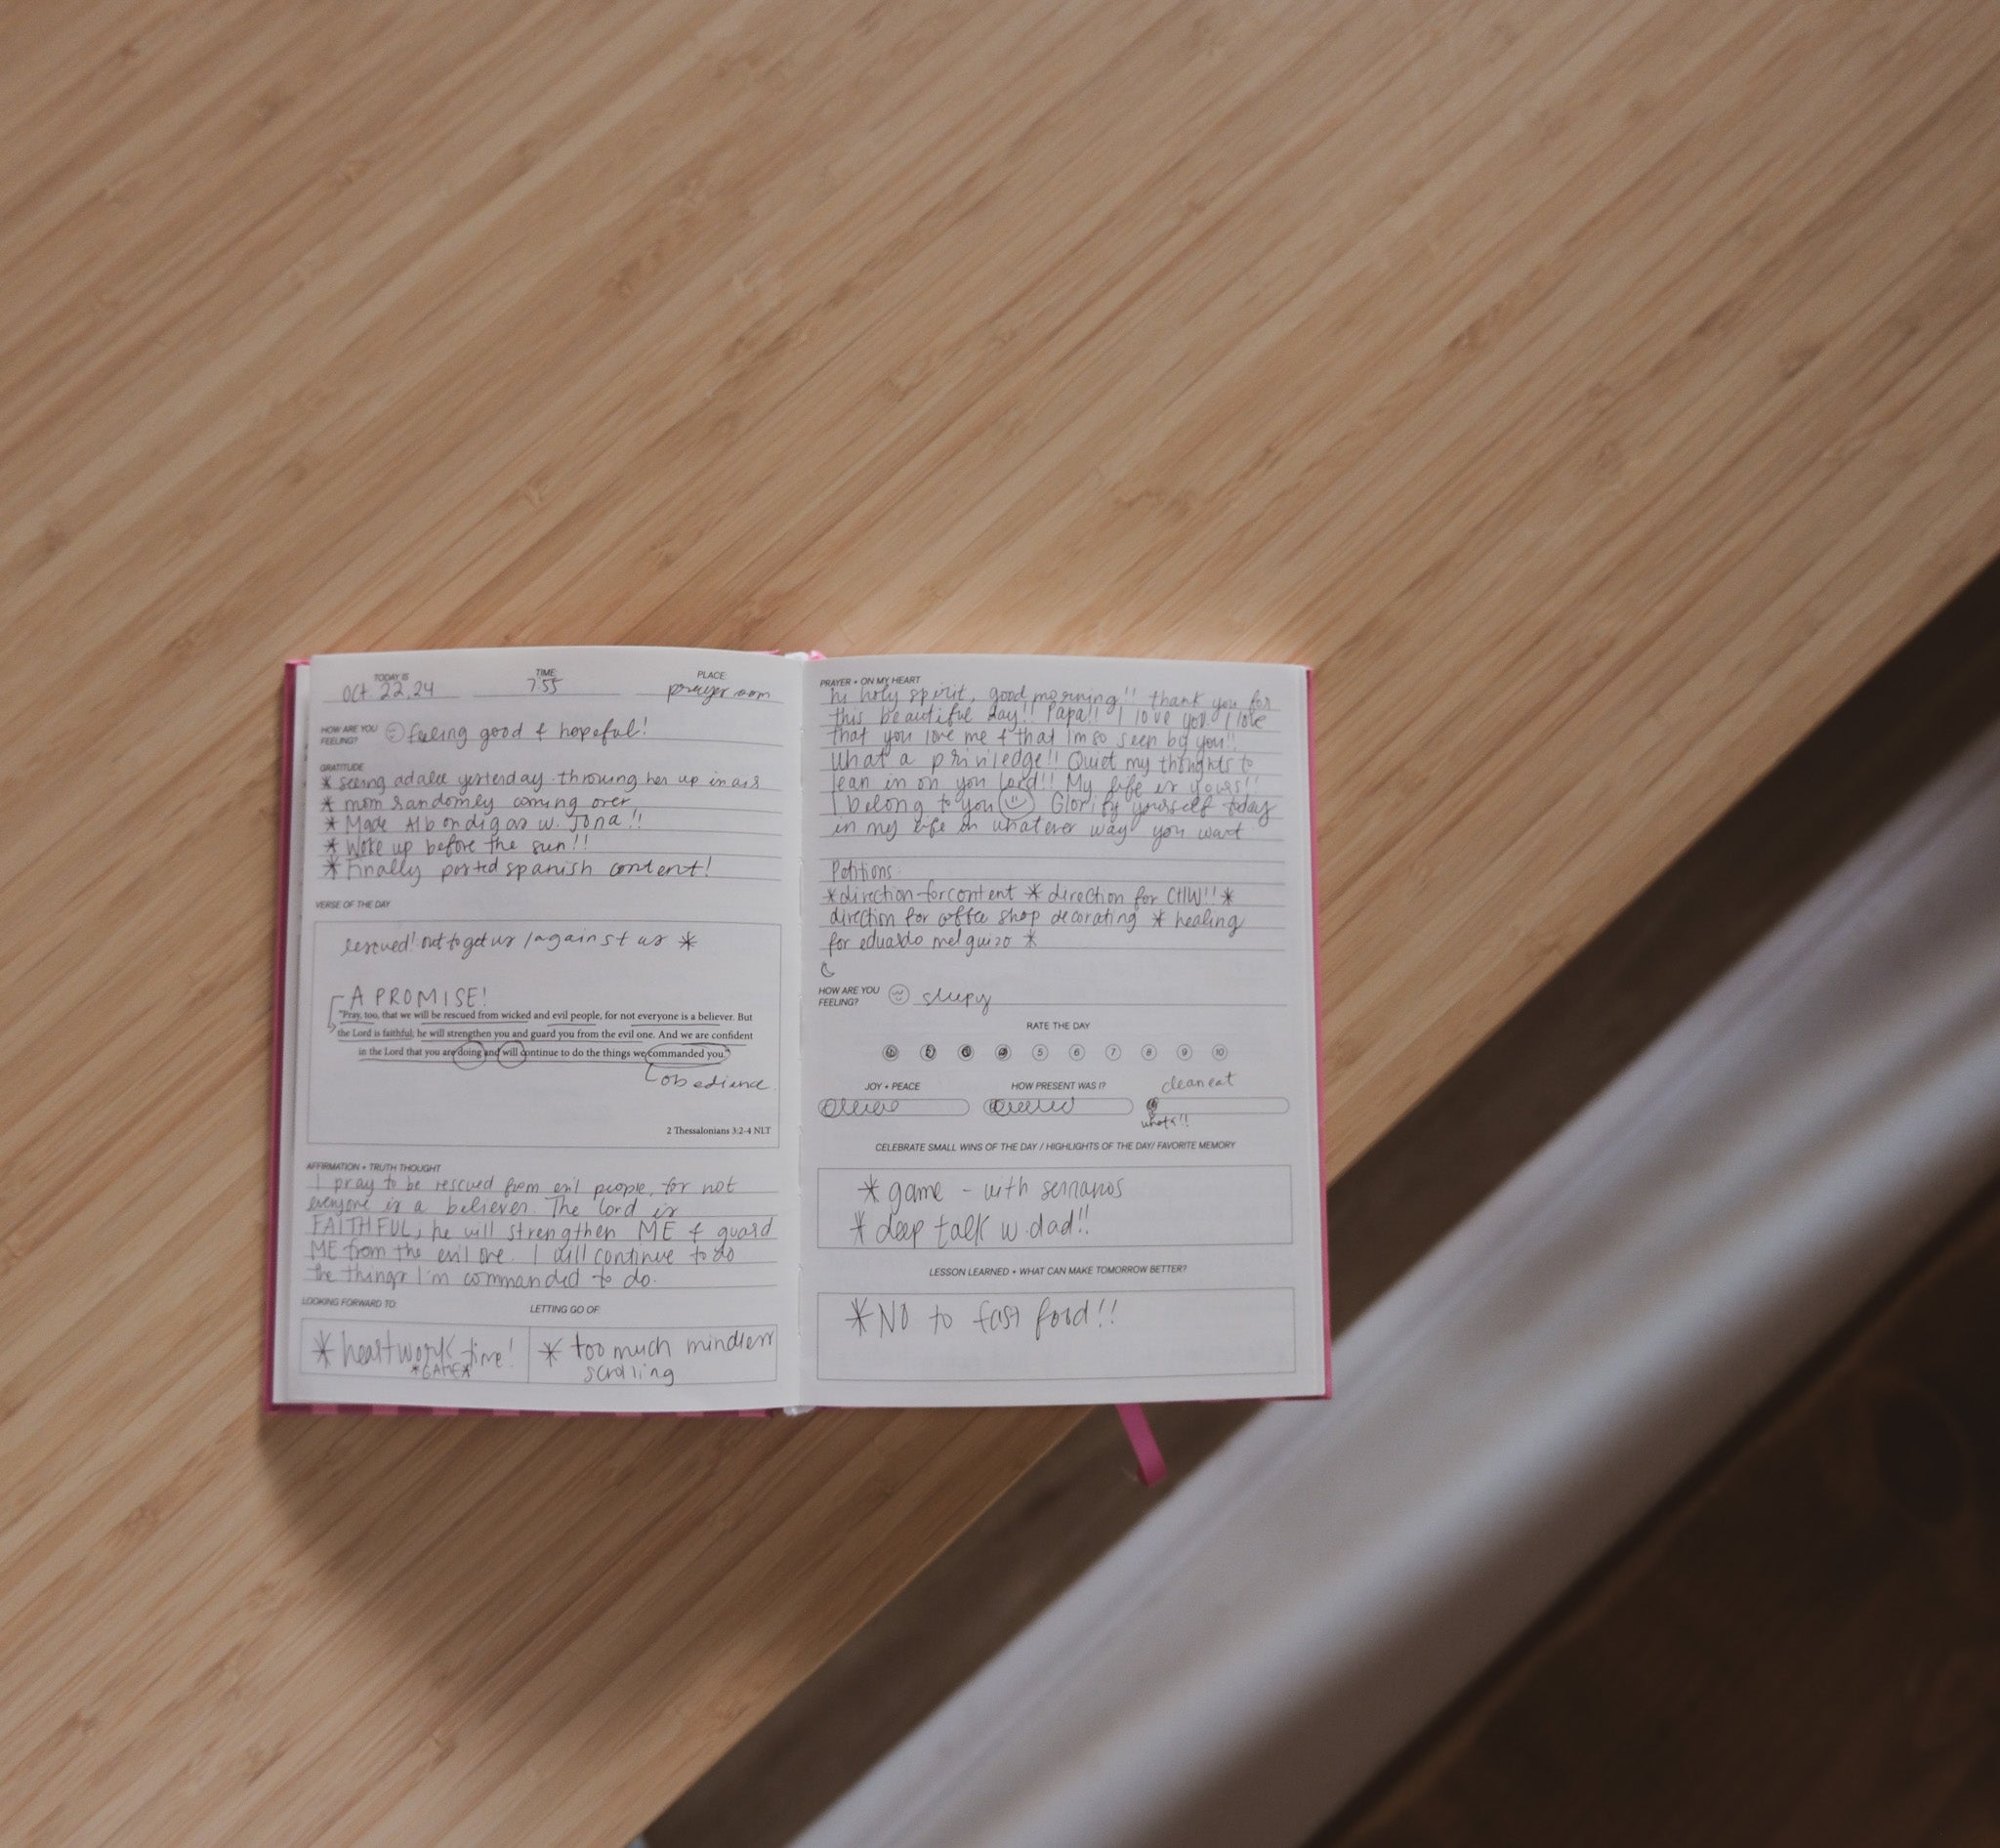 TODAY IS
Oct. 22. 24
TIME:
7:55
PLACE:
prayer room
HOW ARE YOU FEELING? feeling good & hopeful!
GRATITUDE
* seeing adalee yesterday. throwing her up in air
* mom randomly coming over
* Made Albondigas w. Jona!!
* Woke up before the sun!!
* Finally posted spanish content!
VERSE OF THE DAY
rescued! out to get us / against us *
A PROMISE!
"Pray, too, that we will be rescued from wicked and evil people, for not everyone is a believer. But
the Lord is faithful; he will strengthen you and guard you from the evil one. And we are confident
in the Lord that you are doing and will continue to do the things we commanded you."
obedience.
2 Thessalonians 3:2-4 NLT
AFFIRMATION + TRUTH THOUGHT
I pray to be rescued from evil people, for not
everyone is a believer. The lord is
FAITHFUL; he will strengthen ME & guard
ME from the evil one. I will continue to do
the things I'm commanded to do.
LOOKING FORWARD TO:
* heartwork time!
*GAME*
LETTING GO OF:
* too much mindless
scrolling
PRAYER + ON MY HEART
hi holy spirit, good morning!! thank you for
this beautiful day!! Papa!! I love you. I love
that you love me & that Im so seen by you!!
What a priviledge!! Quiet my thoughts to
lean in on you Lord!! My life is yours!!
I belong to you Glorify yourself today
in my life in whatever way you want
Petitions:
*direction for content * direction for CHW!! *
direction for coffee shop decorating * healing
for eduardo melguizo *
HOW ARE YOU FEELING? sleepy
RATE THE DAY
5 6 7 8 9 10
JOY + PEACE
HOW PRESENT WAS I?
clean eat
CELEBRATE SMALL WINS OF THE DAY / HIGHLIGHTS OF THE DAY/ FAVORITE MEMORY
* game - with serranos
* deep talk w. dad!!
LESSON LEARNED + WHAT CAN MAKE TOMORROW BETTER?
* NO to fast food!!